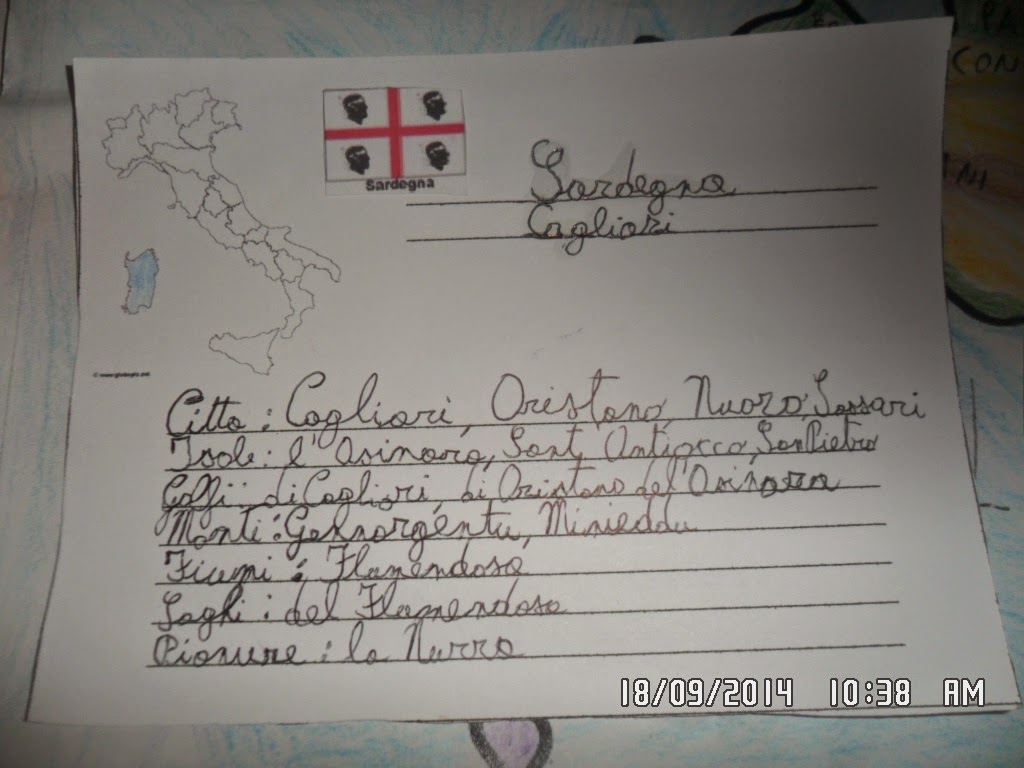 PA
CON
NI
Sardegna
Sardegna
Cagliari
Città: Cagliari, Oristano, Nuoro, Sassari
Isole: l'Asinara, Sant Antiocco, San Pietro
Golfi: di Cagliari, di Oristano del'Asinara
Monti: Gennargentu, Minieddu
Fiumi: Flumendosa
Laghi: del Flumendosa
Pianure: la Nurra
18/09/2014 10:38 AM